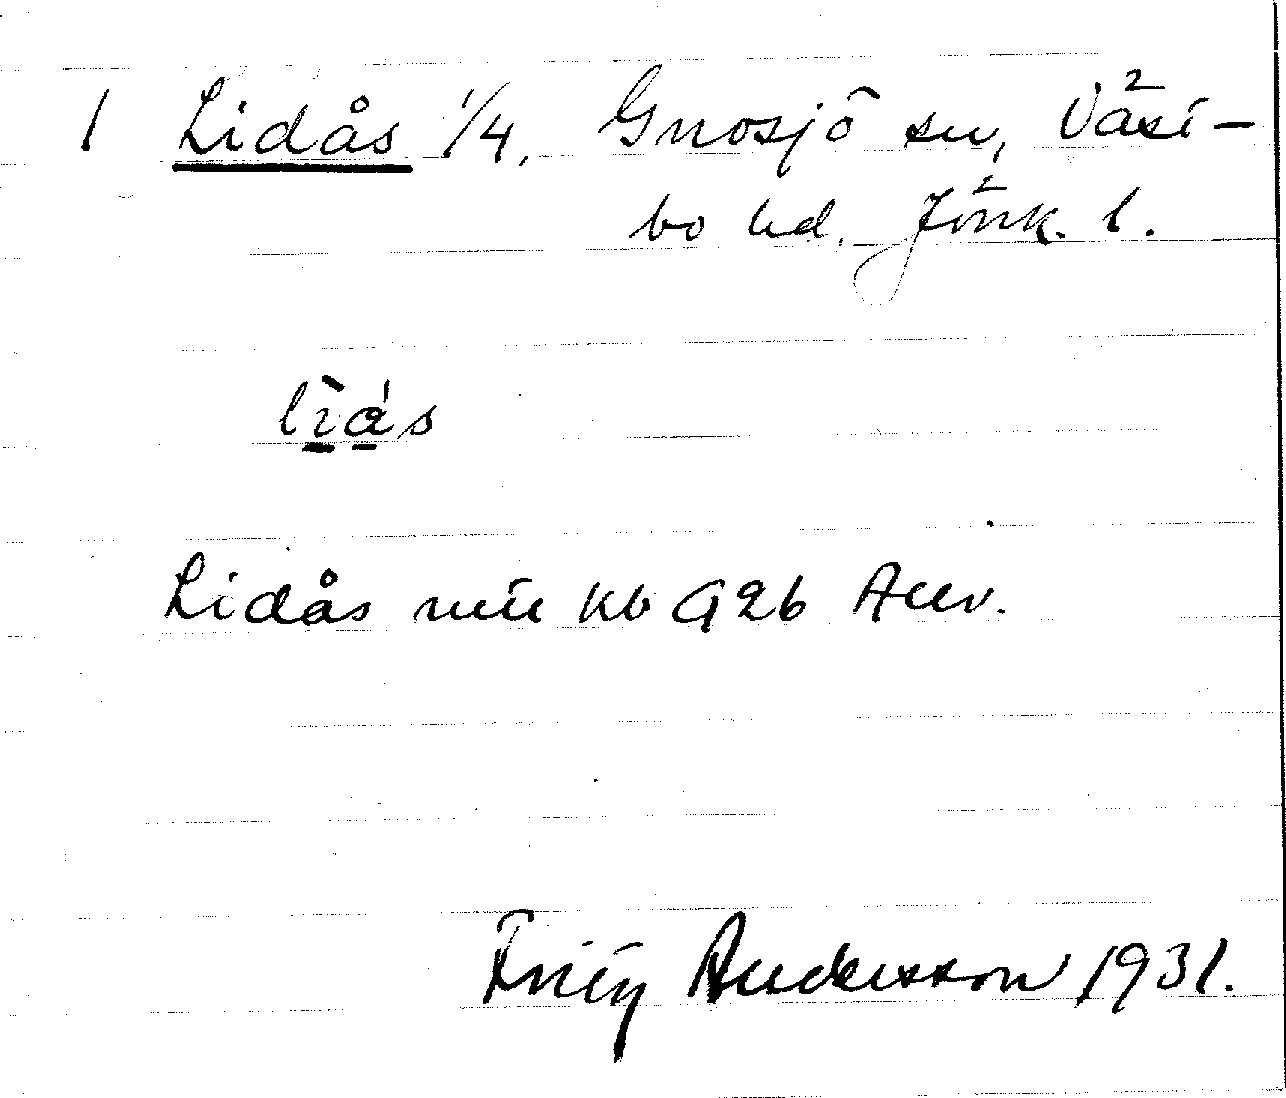 1 Lidås 1/4, Gnosjö sn, Väst-
bo hd. Jönk. l.
līås
Lidås mtl Kb G26 Anv.
Andersson 1931.